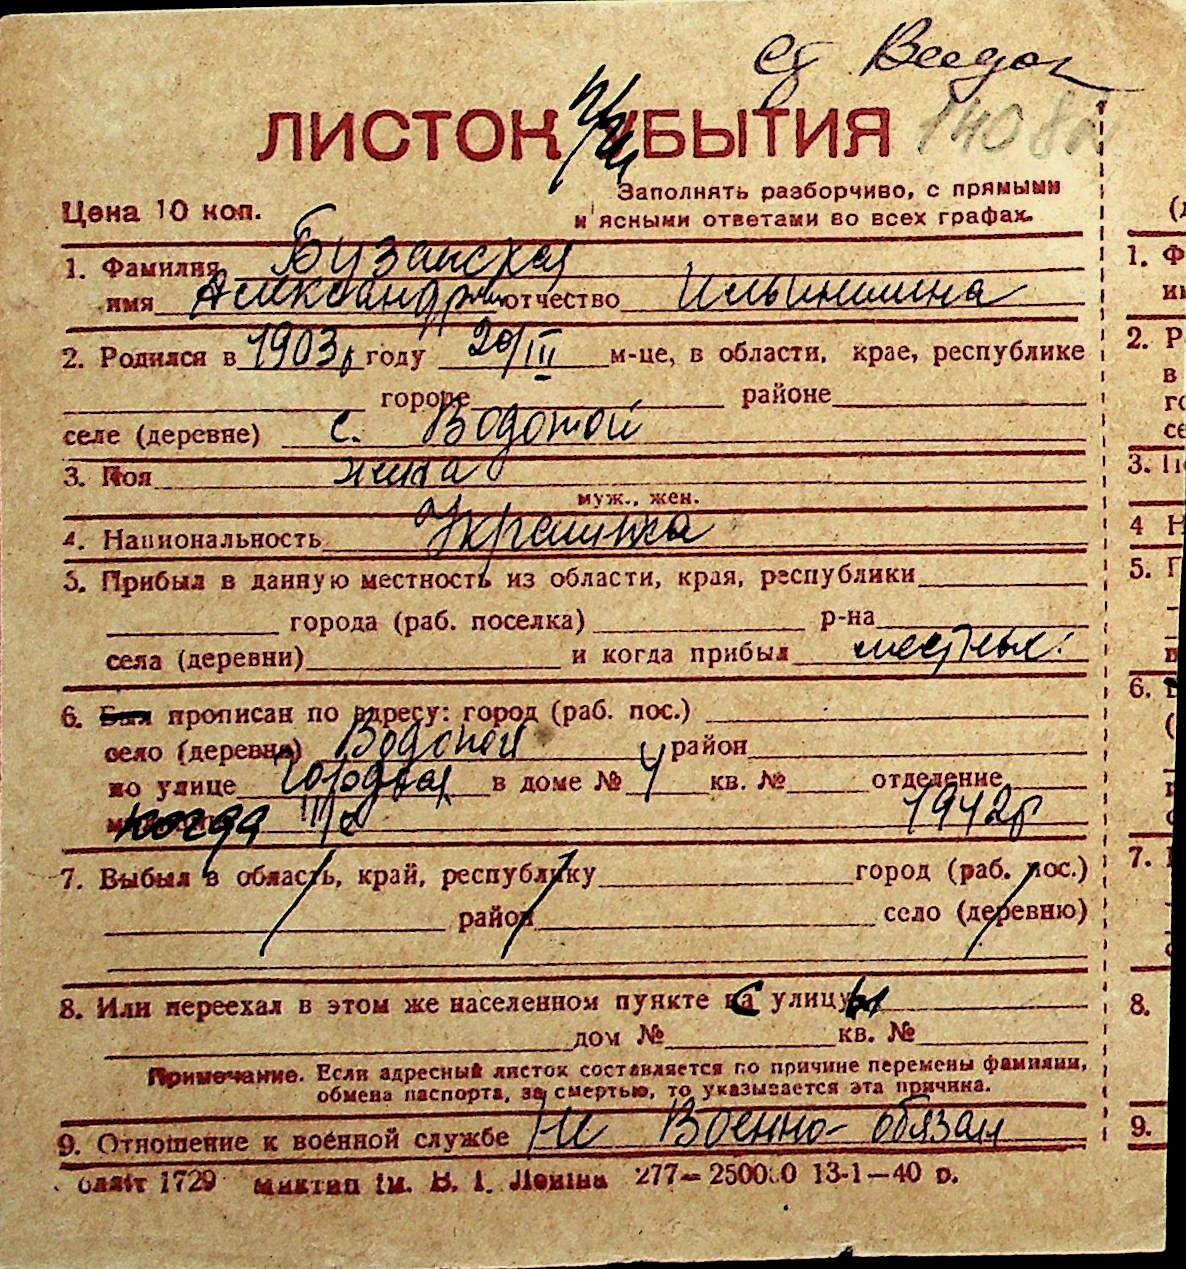 ст Водоп
ЛИСТОК УБЫТИЯ
Цена 10 коп.
Заполнять разборчиво, с прямыми
и ясными ответами во всех графах.
1. Фамилия Бузанская
имя Александра отчество Ильинишна
2. Родился в 1903г году 20/III м-це, в области, крае, республике
городе районе
селе (деревне) с. Водопой
3. Пол жена
муж., жен.
4. Национальность Украинка
5. Прибыл в данную местность из области, края, республики
города (раб. поселка) р-на
села (деревни) и когда прибыл местная
6. Был прописан по адресу: город (раб. пос.)
село (деревня) Водопой район
по улице Городная в доме № 4 кв. № отделение
когда 1942г
7. Выбыл в область, край, республику город (раб. пос.)
район село (деревню)
8. Или переехал в этом же населенном пункте с улицы
дом № кв. №
Примечание. Если адресный листок составляется по причине перемены фамилии,
обмена паспорта, за смертью, то указывается эта причина.
9. Отношение к военной службе Не Военно-обязан
1729 ім. В. І. Леніна 277—250000 13-1—40 р.
(д
1. Ф
им
2. Р
в
го
се
3. П
4 Н
5. П
6.
(
7.
8.
9.